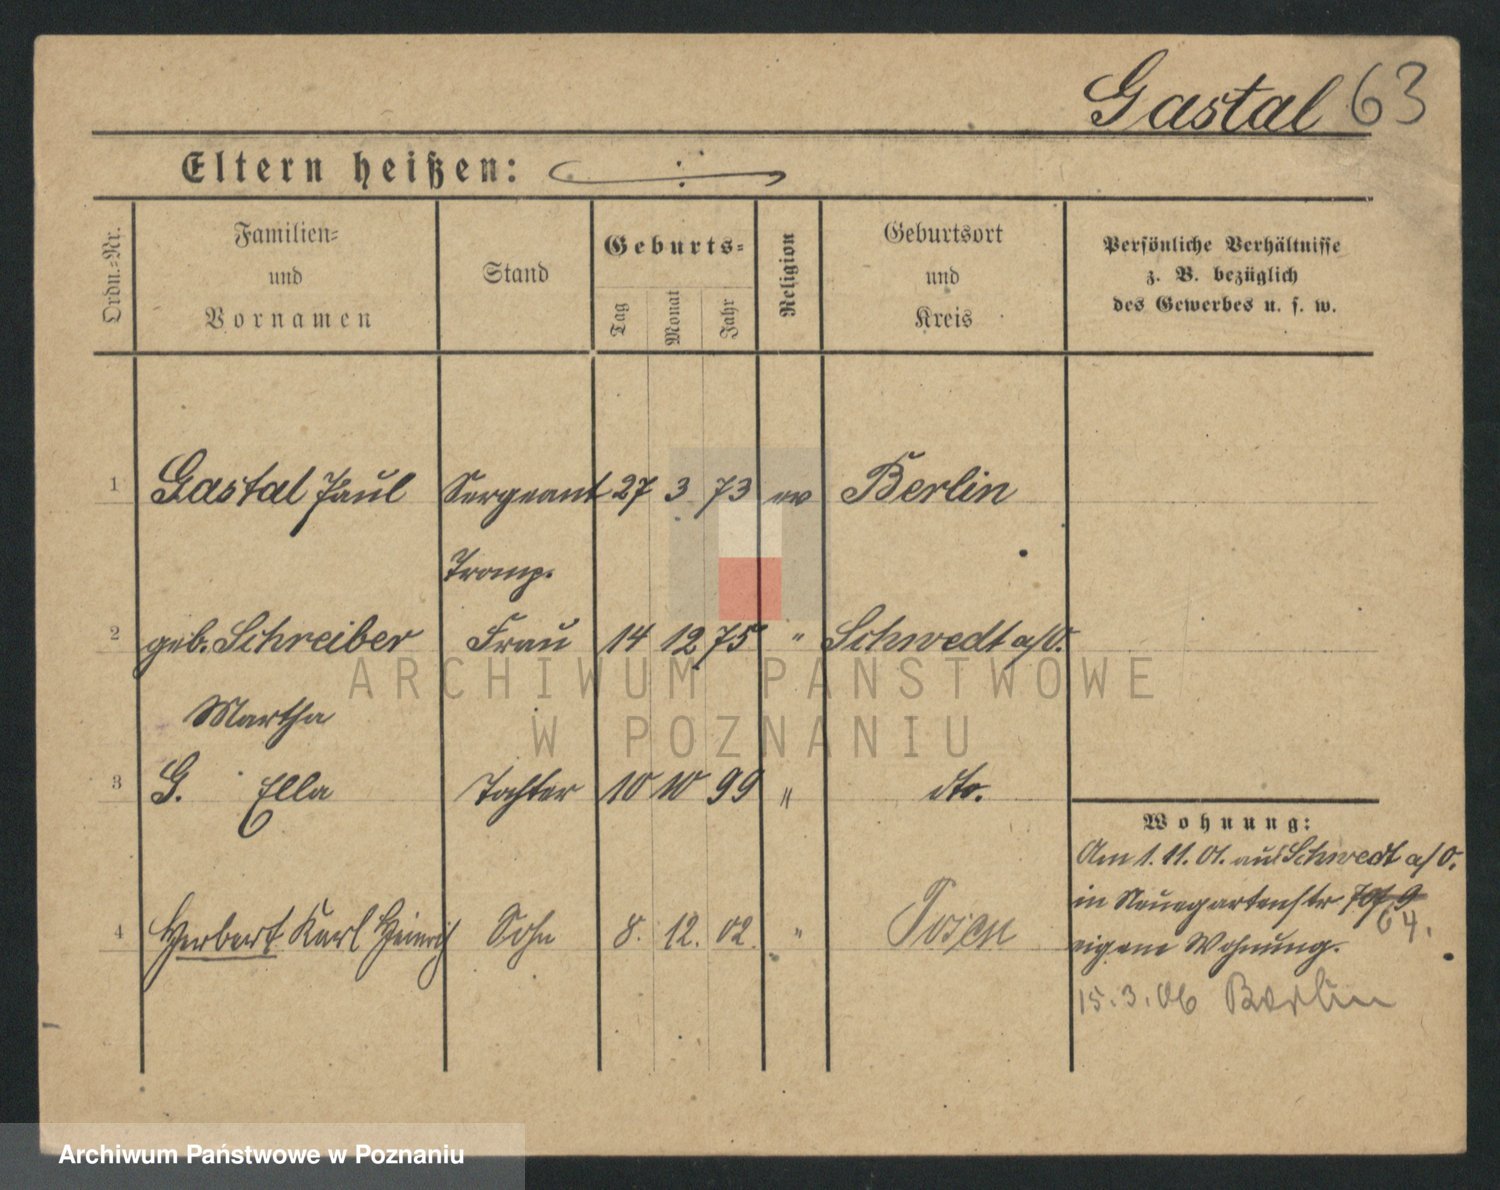 Gastal 63
Eltern heißen:
Ordn.=Nr.
Familien=
und
Vornamen
Stand
Geburts=
Tag
Monat
Jahr
Religion
Geburtsort
und
Kreis
Persönliche Verhältnisse
z. B. bezüglich
des Gewerbes u. s. w.
1 Gastal Paul Sergeant 27 3 73 ev Berlin
Tromp.
2 geb. Schreiber Frau 14 12 75 " Schwedt a/O.
Martha
3 G. Ella Tochter 10 10 99 " dto.
Wohnung:
Am 1. 11. 01. aus Schwedt a/O.
in Neuegartenstr 9
64.
4 Herbert Karl Heinrich Sohn 8. 12. 02. " Posen
eigene Wohnung.
15. 3. 06 Berlin
ARCHIWUM PAŃSTWOWE
W POZNANIU
Archiwum Państwowe w Poznaniu